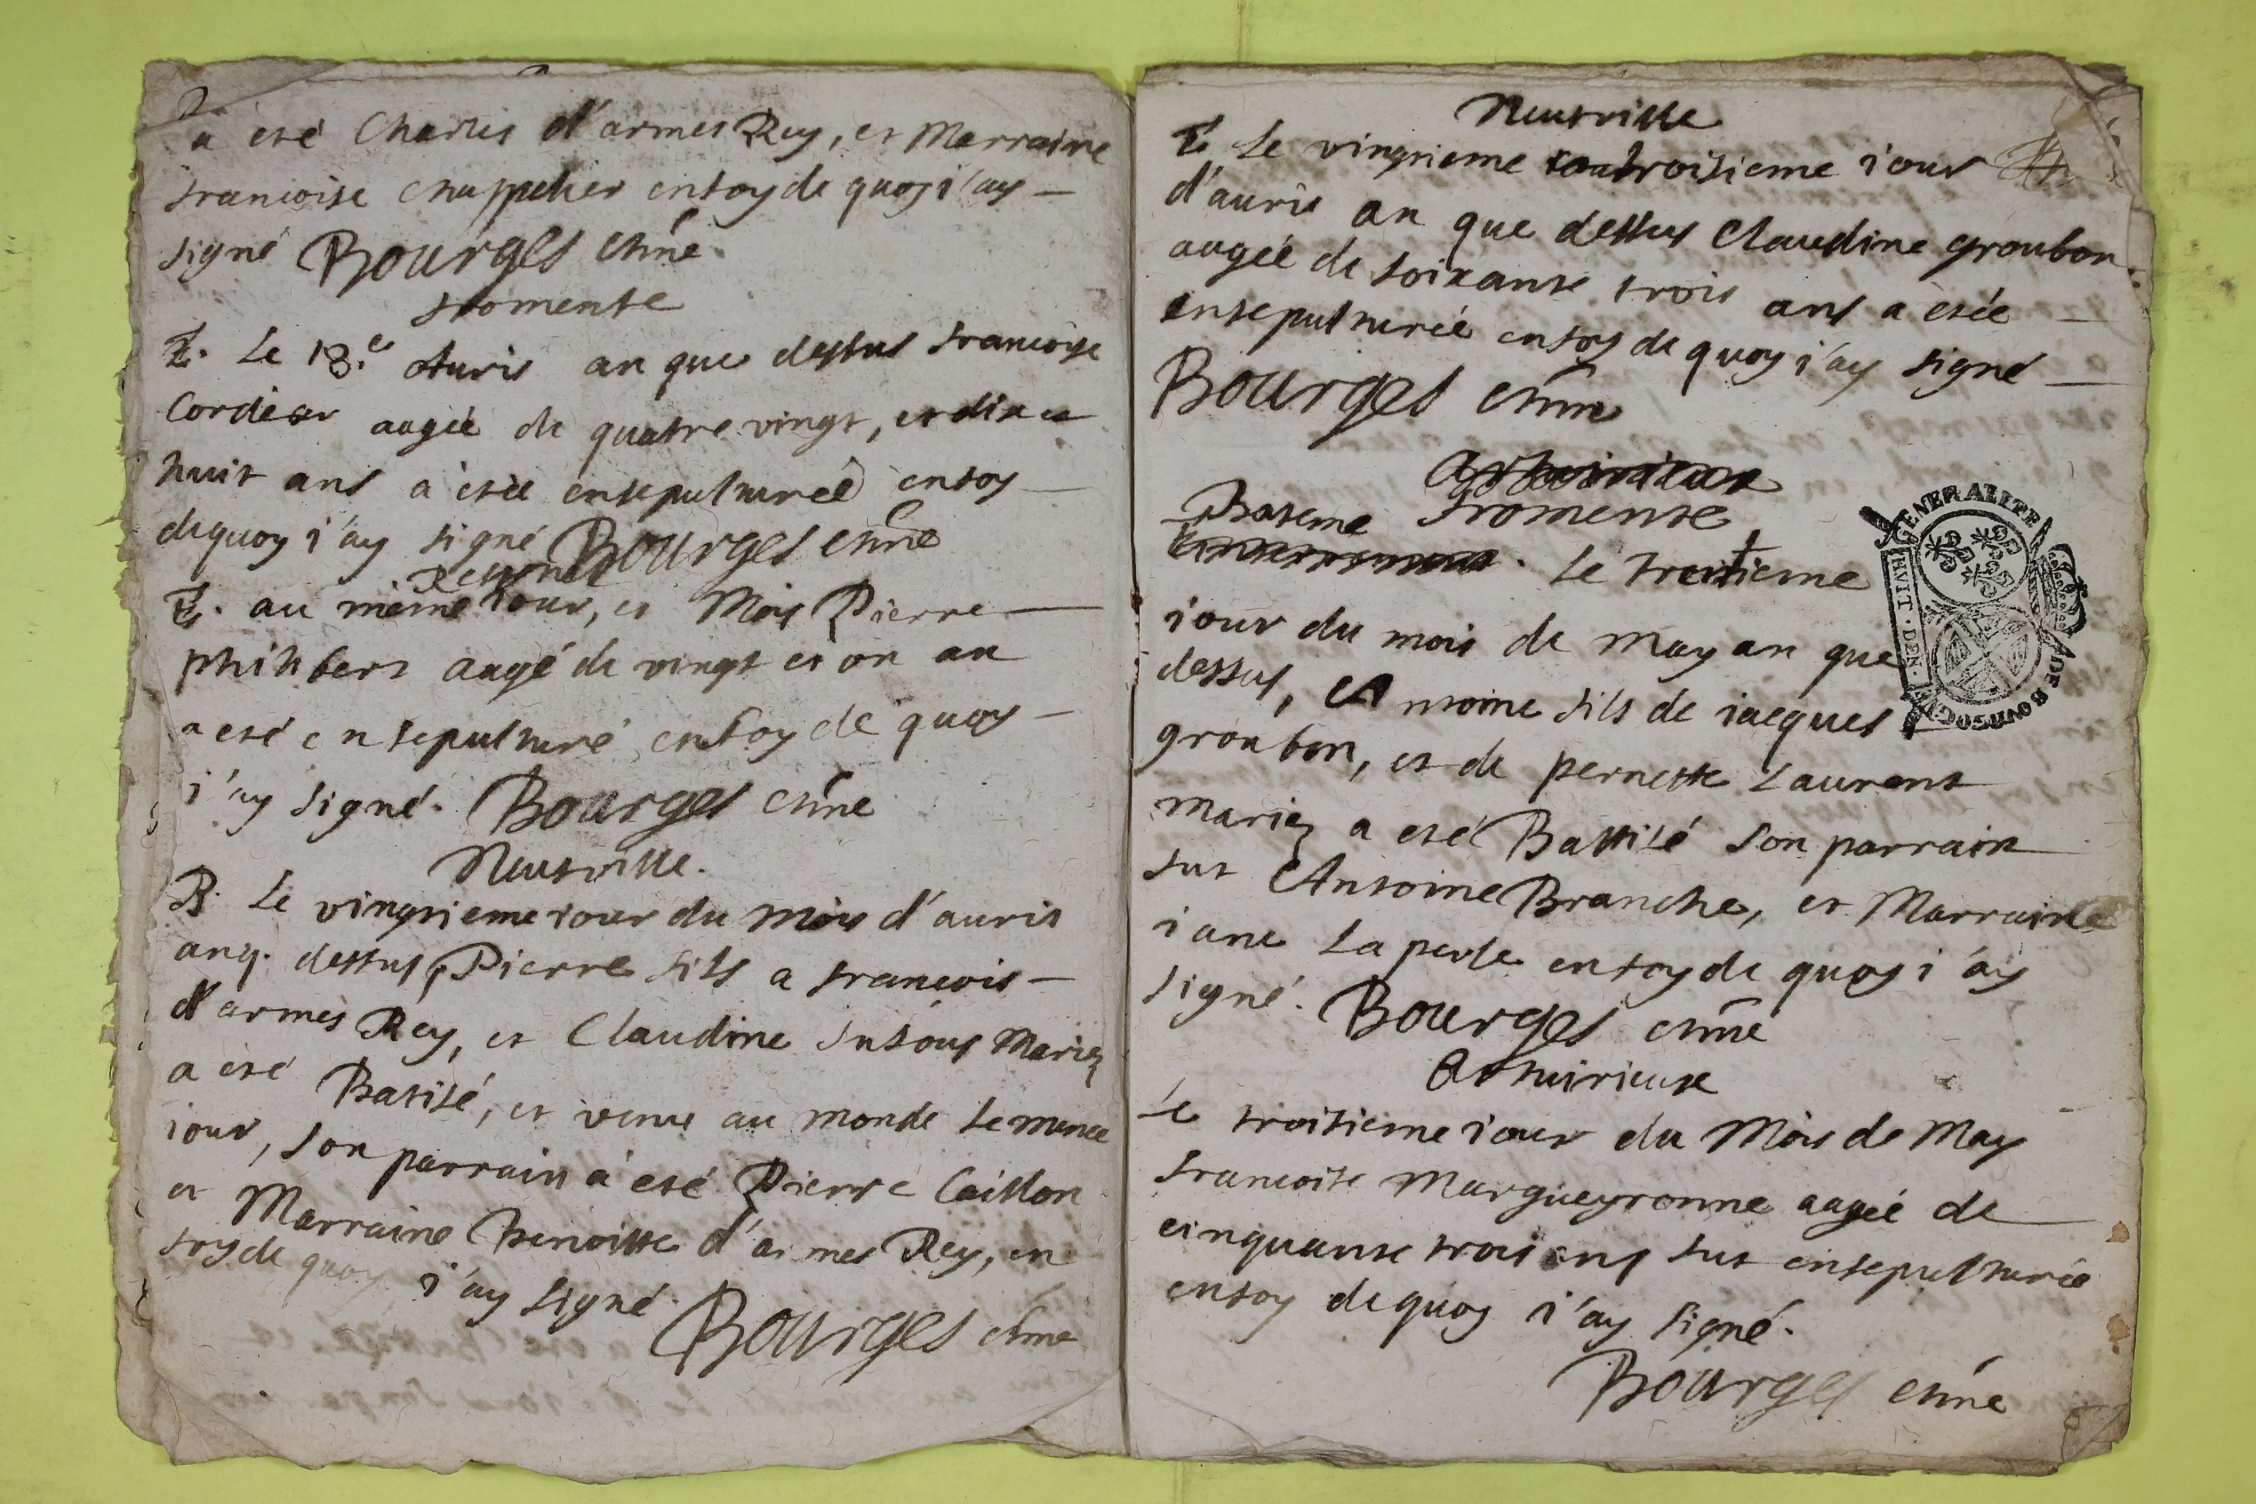 a eté Charles d'armes Rey, et Marraine
francoise Chappelier en foy de quoy i'ay
signé Bourges Cure
fromente
E. Le 18.e Avris an que dessus francoise
Cordier augée de quatre vingt, et dix et
huit ans a étée ensepulturée en foy
de quoy i'ay signé Bourges Cure
E. au même iour, et Mois Pierre
philibert augé de vingt et on an
a eté ensepulturé en foy de quoy
i'ay signé. Bourges Cure
Neufville.
B. Le vingtieme iour du Mois d'avris
an q. dessus, Pierre fils a francois
d'armes Rey, et Claudine Marie
a eté Batisé, et venu au monde le meme
iour, son parrain a eté Pierre Caillon
et Marraine Benoitte d'armes Rey, en
foy de quoy i'ay signé. Bourges Cure
Neufville
E. Le vingtieme troisieme iour
d'avris an que dessus Claudine groubon
augée de soixante trois ans a etée
ensepulturée en foy de quoy i'ay signé
Bourges Cure
fromente
Bateme
Le treitieme
iour du mois de may an que
dessus, Antoine fils de iacques
groubon, et de pernette Laurent
Mariez a eté Battisé son parrain
fut Antoine Branche, et Marraine
iane La perle en foy de quoy i'ay
signé. Bourges Cure
Le troisieme iour du Mois de May
francoise Margueyronne augée de
cinquante trois ans fut ensepulturée
en foy de quoy i'ay signé.
Bourges Cure
GENERALITE
DE BOURGOGNE
HVIT · DEN ·